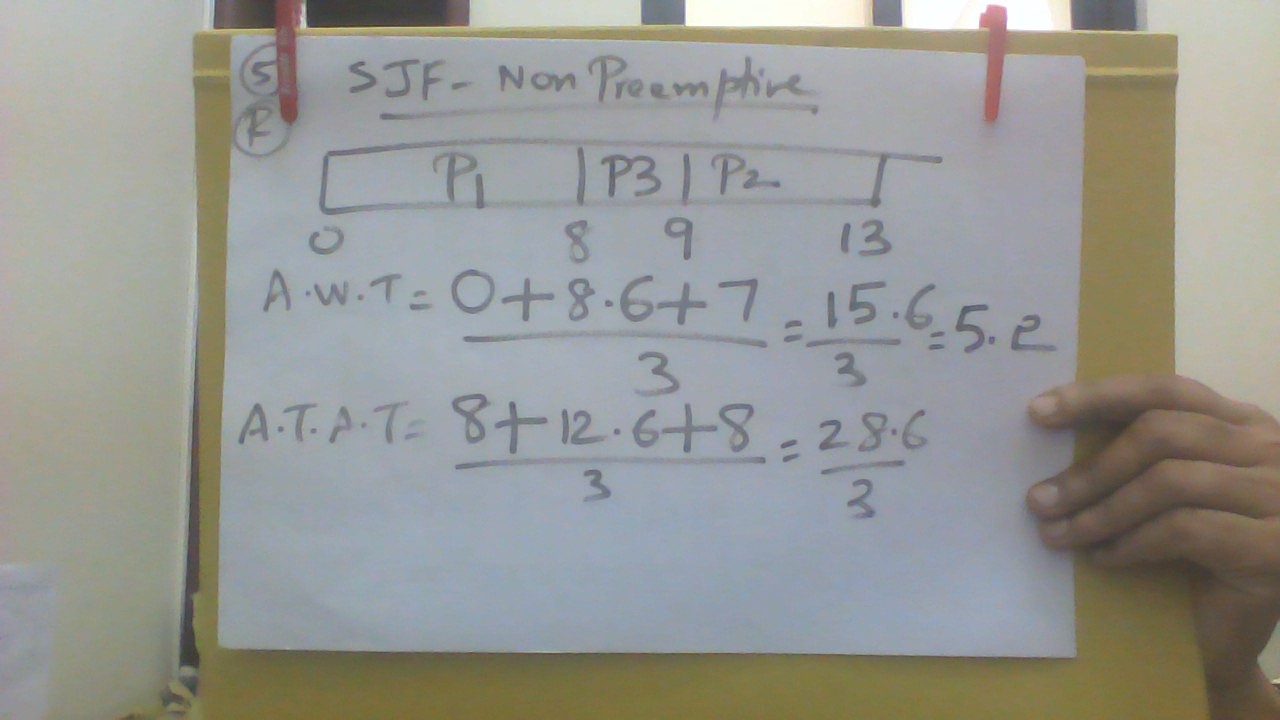 S SJF - Non Preemptive
R
P1 P3 P2
0 8 9 13
A.W.T = 0+8.6+7 / 3 = 15.6 / 3 = 5.2
A.T.A.T = 8+12.6+8 / 3 = 28.6 / 3